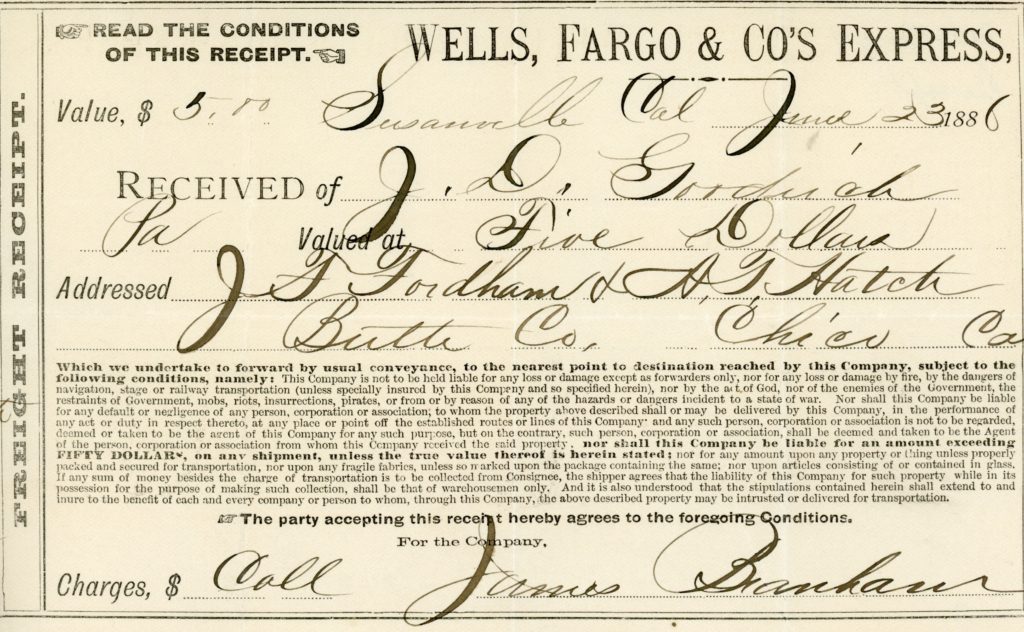 FREIGHT RECEIPT.
READ THE CONDITIONS
OF THIS RECEIPT.
WELLS, FARGO & CO'S EXPRESS,
Value, $ 5.00 Susanville Cal June 23 1886
RECEIVED of J. D. Goodrich
Pa Valued at, Five Dollars
Addressed J F Fordham & A. T. Hatch
Butte Co, Chico Ca
Which we undertake to forward by usual conveyance, to the nearest point to destination reached by this Company, subject to the
following conditions, namely: This Company is not to be held liable for any loss or damage except as forwarders only, nor for any loss or damage by fire, by the dangers of
navigation, stage or railway transportation (unless specially insured by this Company and so specified herein), nor by the act of God, nor of the enemies of the Government, the
restraints of Government, mobs, riots, insurrections, pirates, or from or by reason of any of the hazards or dangers incident to a state of war. Nor shall this Company be liable
for any default or negligence of any person, corporation or association, to whom the property above described shall or may be delivered by this Company, in the performance of
any act or duty in respect thereto, at any place or point off the established routes or lines of this Company and any such person, corporation or association is not to be regarded,
deemed or taken to be the agent of this Company for any such purpose, but on the contrary, such person, corporation or association, shall be deemed and taken to be the Agent
of the person, corporation or association from whom this Company received the said property, nor shall this Company be liable for an amount exceeding
FIFTY DOLLARS, on any shipment, unless the true value thereof is herein stated; nor for any amount upon any property or thing unless properly
packed and secured for transportation, nor upon any fragile fabrics, unless so marked upon the package containing the same; nor upon articles consisting of or contained in glass.
If any sum of money besides the charge of transportation is to be collected from Consignee, the shipper agrees that the liability of this Company for such property while in its
possession for the purpose of making such collection, shall be that of warehousemen only. And it is also understood that the stipulations contained herein shall extend to and
inure to the benefit of each and every company or person to whom, through this Company, the above described property may be intrusted or delivered for transportation.
The party accepting this receipt hereby agrees to the foregoing Conditions.
For the Company,
Charges, $ Coll James Branham